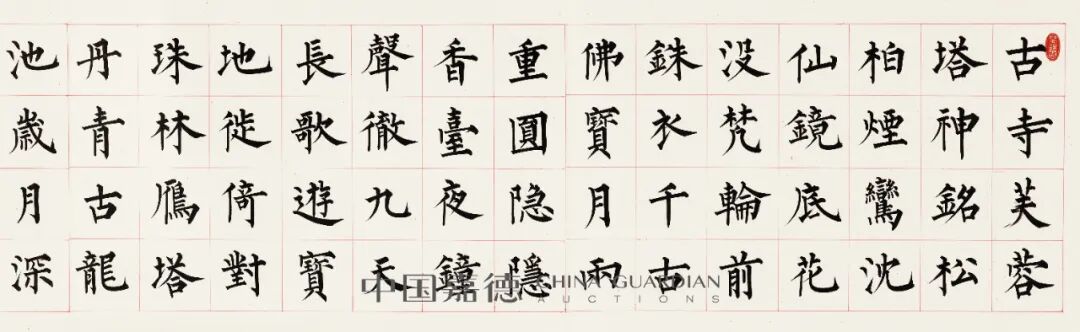 古寺芙蓉
塔神銘松
柏煙鸞沈
仙鏡底花
没梵輪前
銖衣千古
佛寶月兩
重圓隐隱
香臺夜鐘
聲徹九天
長歌遊寶
地徙倚對
珠林鴈塔
丹青古龍
池歲月深
中国嘉德 CHINA GUARDIAN
AUCTIONS